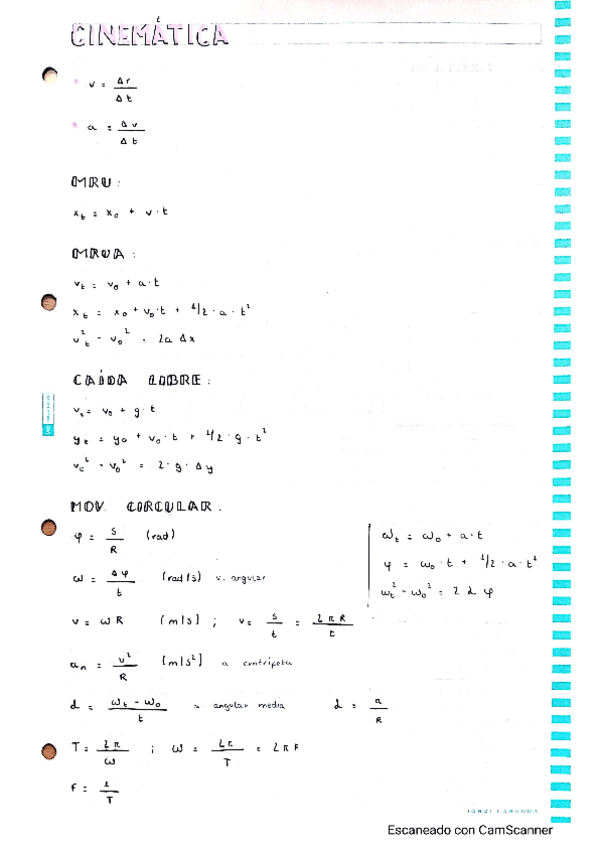 CINEMÁTICA
• v = Δr / Δt
• a = Δv / Δt
MRU:
x_t = x_0 + v·t
MRUA:
v_t = v_0 + a·t
x_t = x_0 + v_0·t + 1/2·a·t²
v_t² - v_0² = 2a Δx
CAÍDA LIBRE:
v_t = v_0 + g·t
y_t = y_0 + v_0·t + 1/2·g·t²
v_t² - v_0² = 2·g·Δy
MOV. CIRCULAR:
φ = S / R (rad)
ω = Δφ / t (rad/s) v. angular
v = ωR (m/s) ; v = s / t = 2πR / t
a_n = v² / R (m/s²) a centrípeta
α = ω_t - ω_0 / t a angular media α = a / R
T = 2π / ω ; ω = 2π / T = 2πF
F = 1 / T
ω_t = ω_0 + a·t
φ = ω_0·t + 1/2·a·t²
ω_t² - ω_0² = 2 α φ
Escaneado con CamScanner